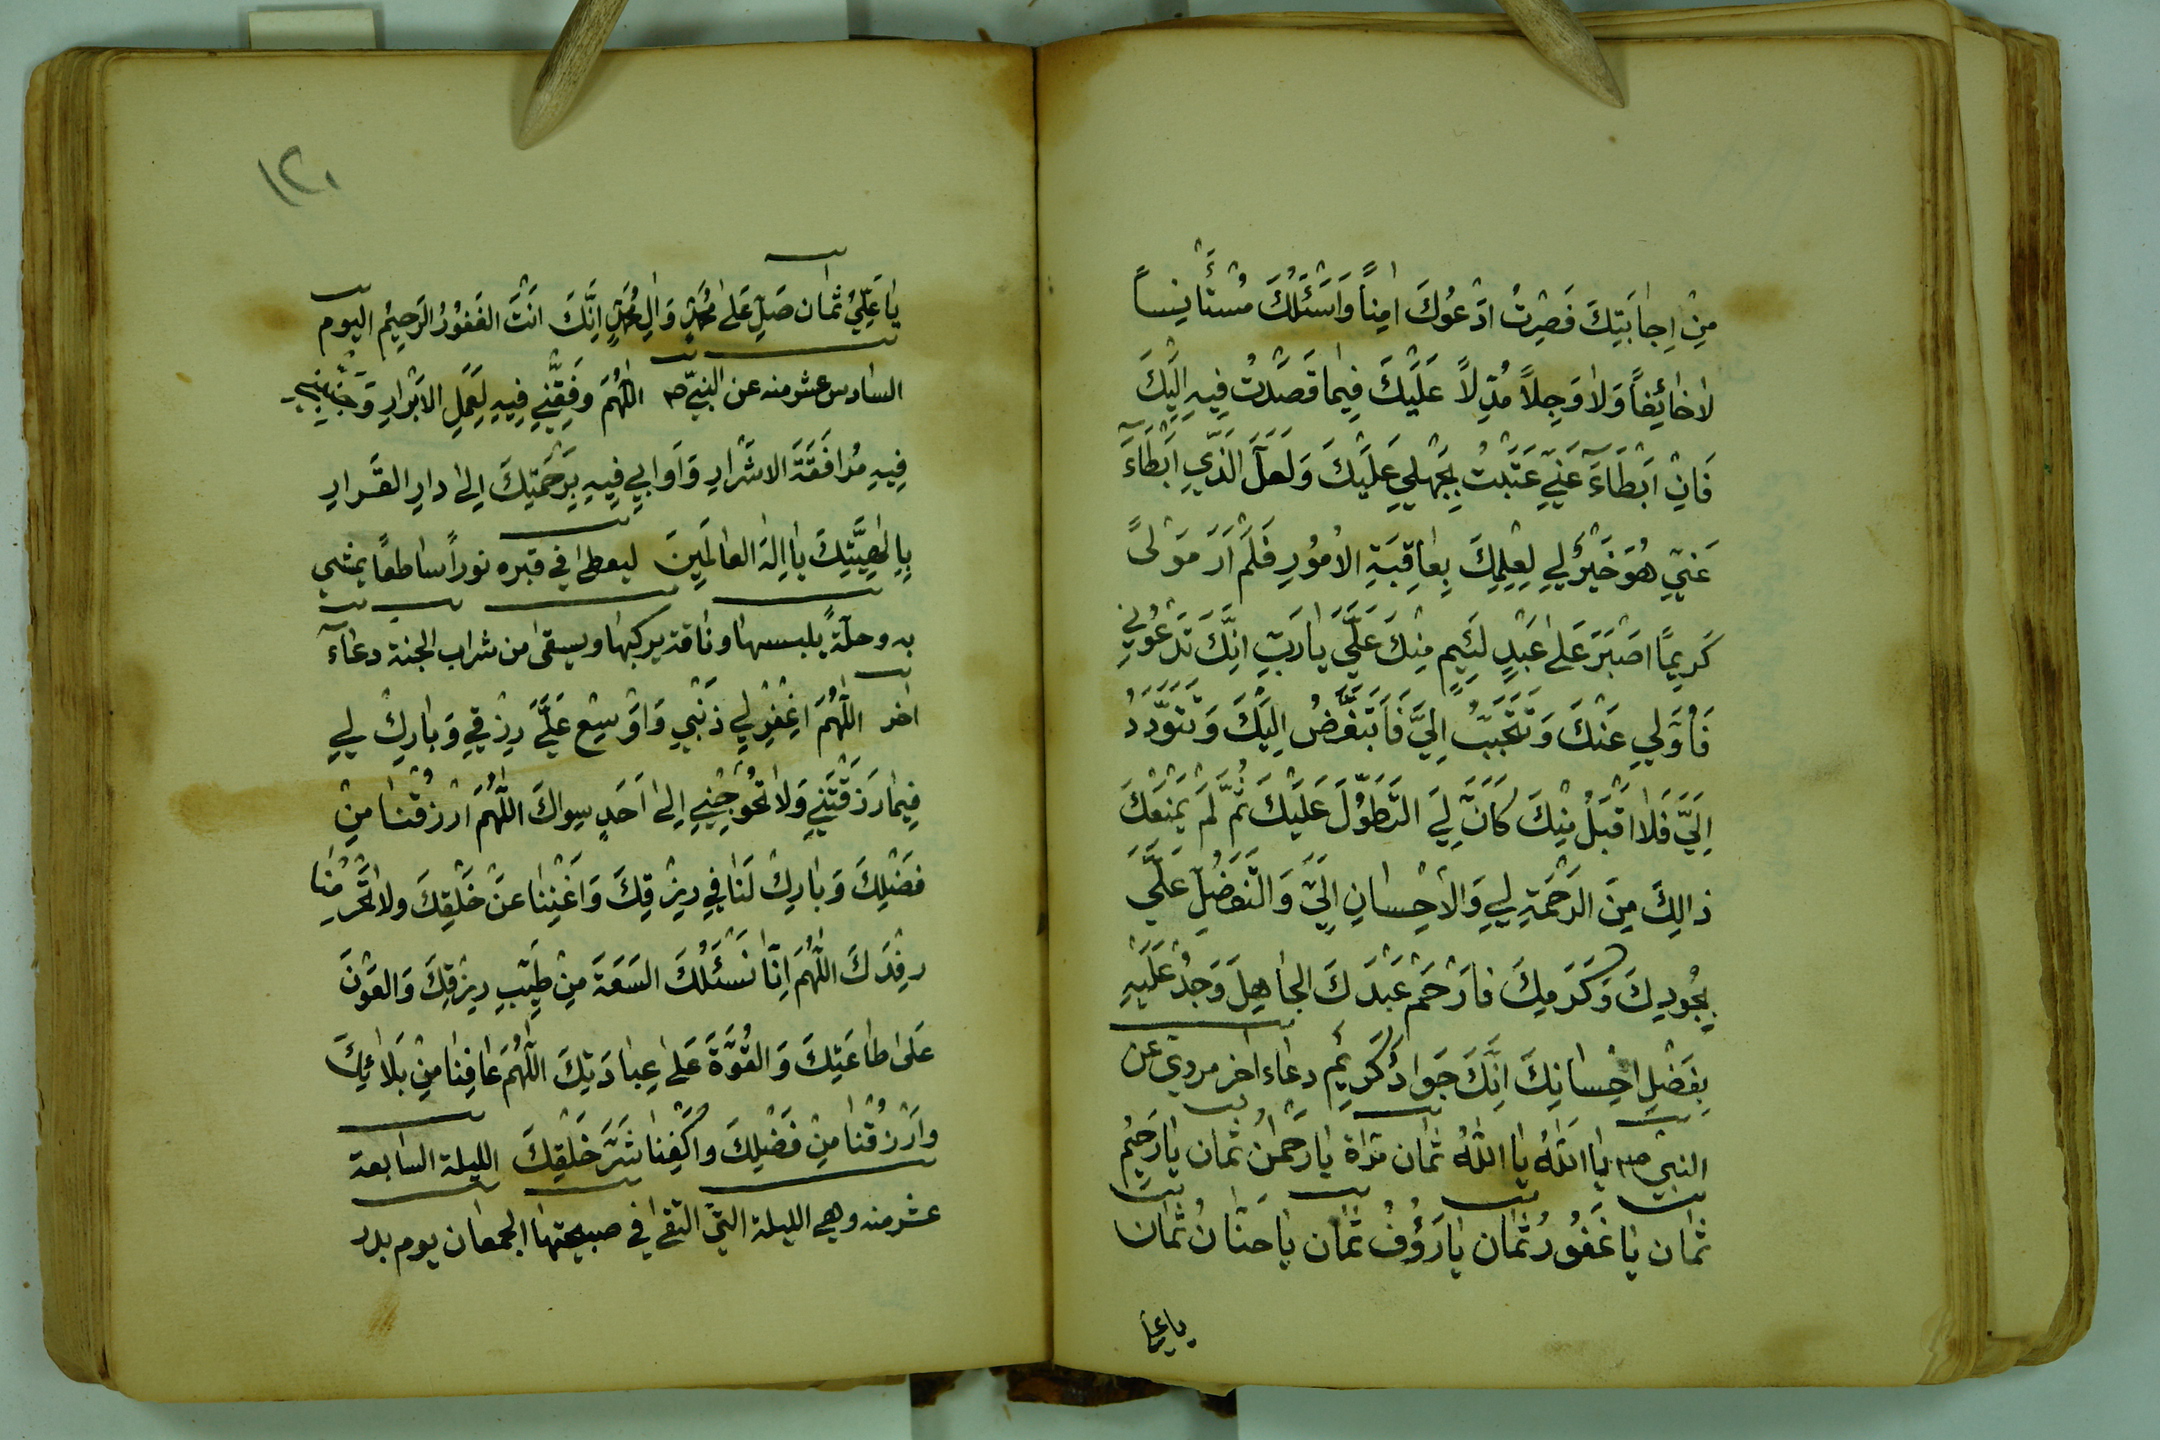 مِنْ اِجابَتِكَ فَصِرْتُ اَدْعُوكَ امِناً وَاَسْئَلُكَ مُسْتَأْنِساً
لاخائِفاً وَلاوَجِلاً مُدِلاً عَلَيْكَ فِيما قَصَدْتُ فِيهِ اِلَيْكَ
فَاِنْ اَبْطَاءَ عَنّي عَتَبْتُ بِجَهْلي عَلَيْكَ وَلَعَلَّ الَّذي اَبْطَاءَ
عَنّي هُوَ خَيْرٌ لي لِعِلْمِكَ بِعاقِبَةِ الاُمُورِ فَلَمْ اَرَ مَوْلىً
كَرِيمًا اصْبَرَ عَلى عَبْدٍ لَئيمٍ مِنْكَ عَلَيَّ يا رَبِّ اِنَّكَ تَدْعُوني
فَاُوَلّي عَنْكَ وَتَتَحَبَّبُ اِلَيَّ فَاَتَبَغَّضُ اِلَيْكَ وَتَتَوَدَّدُ
اِلَيَّ فَلا اَقْبَلُ مِنْكَ كَاَنَّ لِيَ التَّطَوُّلَ عَلَيْكَ ثُمَّ لَمْ يَمْنَعْكَ
ذالِكَ مِنَ الرَّحْمَةِ لي وَالاِحْسانِ اِلَيَّ وَالتَّفَضُّلِ عَلَيَّ
بِجُودِكَ وَكَرَمِكَ فارْحَمْ عَبْدَكَ الجاهِلَ وَجُدْ عَلَيْهِ
بِفَضْلِ اِحْسانِكَ اِنَّكَ جَوادٌ كَريمٌ دعاء اخر مروي عن
النبي ص يا اَللهُ يا اَللهُ ثمان مرّاة يا رَحْمنُ ثمان يا رَحيمُ
ثمان يا غَفُورُ ثمان يا رَؤُفُ ثمان يا حَنّانُ ثمان
يا علي
١٢٠
يا عَلِيُّ ثمان صَلِّ عَلى مُحَمَّدٍ وَالِ مُحَمَّدٍ اِنَّكَ اَنْتَ الغَفُورُ الرَحيمُ اليوم
السادس عشر منه عن النبيّ ص اَللّهُمَّ وَفِّقْني فِيهِ لِعَمَلِ الاَبْرارِ وَجَنِّبْني
فِيهِ مُرافَقَةَ الاشْرارِ وَاوِني فِيهِ بِرَحْمَتِكَ اِلى دارِ القَرارِ
بِاِلهِيَّتِكَ يا اِلهَ العالَمِينَ ليعطى في قبره نوراً ساطعًا يمشي
به وحلّةً يلبسها وناقة يركبها ويسقى من شراب الجنة دعاء
اخر اَللّهُمَّ اغْفِرْلي ذَنْبي وَاَوْسِعْ عَلَيَّ رِزْقي وَبارِكْ لي
فِيما رَزَقْتَني وَلا تُحْوِجْني اِلى اَحَدٍ سِواكَ اَللّهُمَّ ارْزُقْنا مِنْ
فَضْلِكَ وَبارِكْ لَنا في رِزْقِكَ وَاَغْنِنا عَنْ خَلْقِكَ ولا تَحْرِمْنا
رِفْدَكَ اَللّهُمَّ اِنّا نَسْئَلُكَ السَعَةَ مِنْ طَيِّبِ رِزْقِكَ وَالعَوْنَ
عَلى طاعَتِكَ وَالقُوَّةَ عَلى عِبادَتِكَ اَللّهُمَّ عافِنا مِنْ بَلائِكَ
وارْزُقْنا مِنْ فَضْلِكَ وَاكْفِنا شَرَّ خَلْقِكَ الليلة السابعة
عشر منه وهي الليلة التي التقى في صبيحتها الجمعان يوم بدر